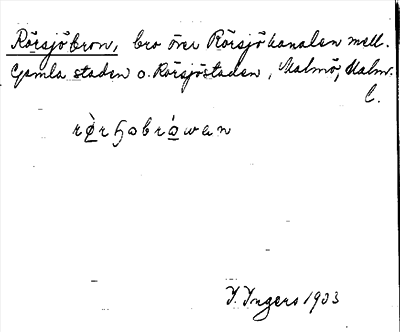 Rörsjöbron, bro över Rörsjökanalen mell.
Gamla staden o. Rörsjöstaden, Malmö, Malm.
L.
I. Ingers 1933